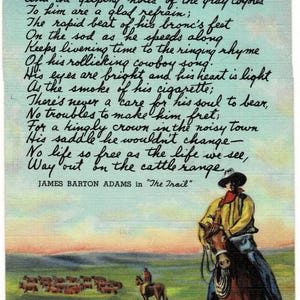 And the yelping noise of the gray coyotes
To him are a glad refrain;
The rapid beat of his bronc's feet
On the sod as he speeds along
Keeps livening time to the ringing rhyme
Of his rollicking cowboy song.
His eyes are bright and his heart is light
As the smoke of his cigarette;
There's never a care for his soul to bear,
No troubles to make him fret;
For a kingly crown in the noisy town
His saddle he wouldn't change—
No life so free as the life we see,
Way out on the cattle range.
JAMES BARTON ADAMS in "The Trail"